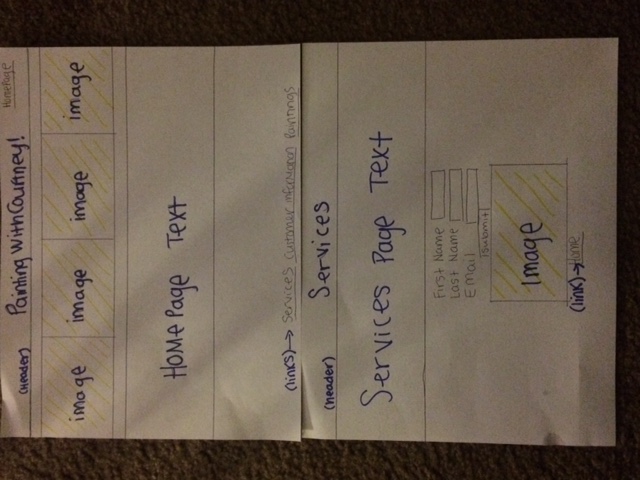 HomePage
(Header) Painting With Courtney!
image image image image
Home Page Text
(links)→ Services Customer Information Paintings
(header) Services
Services Page Text
First Name
Last Name
Email
Submit
Image
(link)→Home